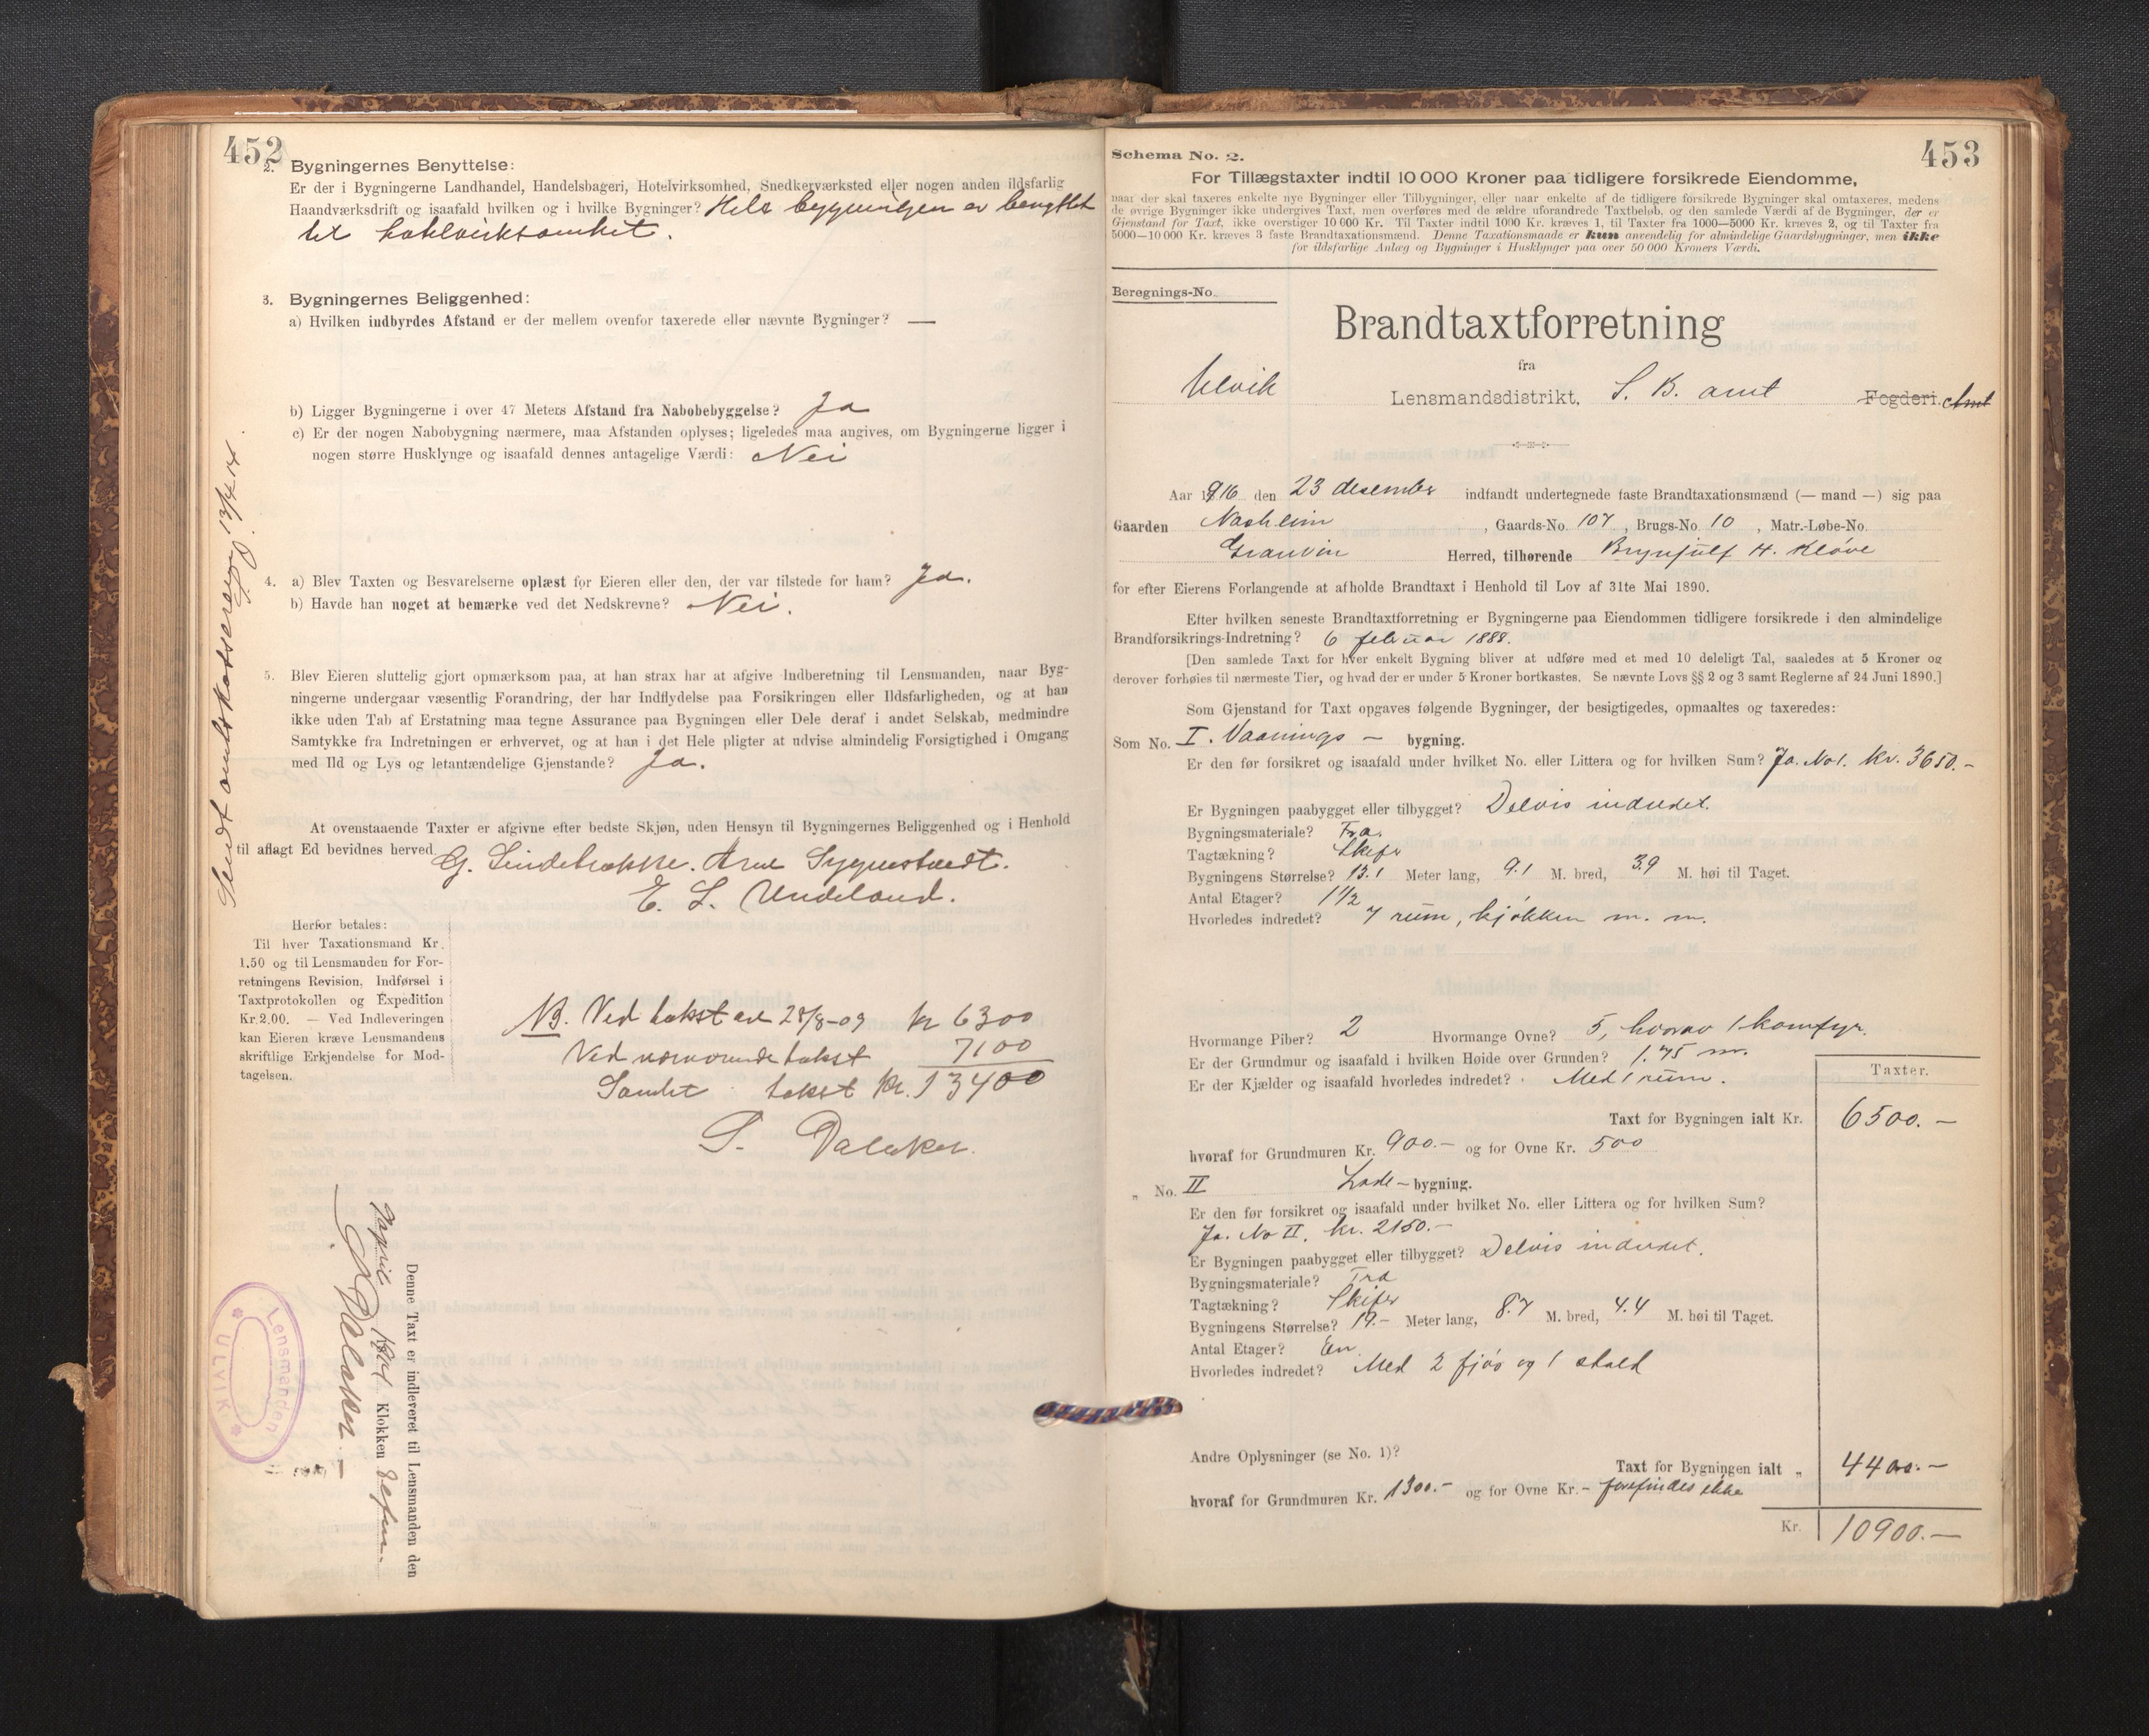 452
2. Bygningernes Benyttelse:
Er der i Bygningerne Landhandel, Handelsbageri, Hotelvirksomhed, Snedkerværksted eller nogen anden ildsfarlig
Haandværksdrift og isaafald hvilken og i hvilke Bygninger? Hele bygningen er benyttet
til hotelvirksomhet.
3. Bygningernes Beliggenhed:
a) Hvilken indbyrdes Afstand er der mellem ovenfor taxerede eller nævnte Bygninger? —
b) Ligger Bygningerne i over 47 Meters Afstand fra Nabobebyggelse? Ja
c) Er der nogen Nabobygning nærmere, maa Afstanden oplyses; ligeledes maa angives, om Bygningerne ligger i
nogen større Husklynge og isaafald dennes antagelige Værdi: Nei
4. a) Blev Taxten og Besvarelserne oplæst for Eieren eller den, der var tilstede for ham? Ja.
b) Havde han noget at bemærke ved det Nedskrevne? Nei.
5. Blev Eieren sluttelig gjort opmærksom paa, at han strax har at afgive Indberetning til Lensmanden, naar Byg-
ningerne undergaar væsentlig Forandring, der har Indflydelse paa Forsikringen eller Ildsfarligheden, og at han
ikke uden Tab af Erstatning maa tegne Assurance paa Bygningen eller Dele deraf i andet Selskab, medmindre
Samtykke fra Indretningen er erhvervet, og at han i det Hele pligter at udvise almindelig Forsigtighed i Omgang
med Ild og Lys og letantændelige Gjenstande? Ja.
At ovenstaaende Taxter er afgivne efter bedste Skjøn, uden Hensyn til Bygningernes Beliggenhed og i Henhold
til aflagt Ed bevidnes herved
G. Lindebrække. Arne Syguestvedt.
E. L. Undeland.
Herfor betales:
Til hver Taxationsmand Kr.
1.50 og til Lensmanden for For-
retningens Revision, Indførsel i
Taxtprotokollen og Expedition
Kr. 2.00. — Ved Indleveringen
kan Eieren kræve Lensmandens
skriftlige Erkjendelse for Mod-
tagelsen.
NB. Ved takst av 28/8-09 kr 6300
Ved nærværende takst 7100
Samlet takst kr. 13400
Dalaker.
Denne Taxt er indleveret til Lensmanden den
Klokken
Dalaker
Lensmanden
* ULVIK *
Sendt amtskasserer 13/4 14.
453
Schema No. 2.
For Tillægstaxter indtil 10 000 Kroner paa tidligere forsikrede Eiendomme,
naar der skal taxeres enkelte nye Bygninger eller Tilbygninger, eller naar enkelte af de tidligere forsikrede Bygninger skal omtaxeres, medens
de øvrige Bygninger ikke undergives Taxt, men overføres med de ældre uforandrede Taxtbeløb, og den samlede Værdi af de Bygninger, der er
Gjenstand for Taxt, ikke overstiger 10 000 Kr. Til Taxter indtil 1000 Kr. kræves 1, til Taxter fra 1000—5000 Kr. kræves 2, og til Taxter fra
5000—10 000 Kr. kræves 3 faste Brandtaxationsmænd. Denne Taxationsmaade er kun anvendelig for almindelige Gaardsbygninger, men ikke
for ildsfarlige Anlæg og Bygninger i Husklynger paa over 50 000 Kroners Værdi.
Beregnings-No.
Brandtaxtforretning
fra
Ulvik Lensmandsdistrikt, S. B. amt Fogderi. Amt
Aar 1916 den 23 desember indfandt undertegnede faste Brandtaxationsmænd (— mand —) sig paa
Gaarden Nashlim, Gaards-No. 107, Brugs-No. 10, Matr.-Løbe-No.
Granvin Herred, tilhørende Brynjulf H. Kløve
for efter Eierens Forlangende at afholde Brandtaxt i Henhold til Lov af 31te Mai 1890.
Efter hvilken seneste Brandtaxtforretning er Bygningerne paa Eiendommen tidligere forsikrede i den almindelige
Brandforsikrings-Indretning? 6 februar 1888.
[Den samlede Taxt for hver enkelt Bygning bliver at udføre med et med 10 deleligt Tal, saaledes at 5 Kroner og
derover forhøies til nærmeste Tier, og hvad der er under 5 Kroner bortkastes. Se nævnte Lovs §§ 2 og 3 samt Reglerne af 24 Juni 1890.]
Som Gjenstand for Taxt opgaves følgende Bygninger, der besigtigedes, opmaaltes og taxeredes:
Som No. I. Vaanings — bygning.
Er den før forsikret og isaafald under hvilket No. eller Littera og for hvilken Sum? Ja. No 1. kr. 3650.-
Er Bygningen paabygget eller tilbygget? Delvis indredet.
Bygningsmateriale? Træ.
Tagtækning? Skifer
Bygningens Størrelse? 13.1 Meter lang, 9.1 M. bred, 3.9 M. høi til Taget.
Antal Etager? 1 1/2
Hvorledes indredet? 7 rum, kjøkken m. m.
Hvormange Piber? 2 Hvormange Ovne? 5, hvorav 1 komfyr.
Er der Grundmur og isaafald i hvilken Høide over Grunden? 1.75 m.
Er der Kjælder og isaafald hvorledes indredet? Med 1 rum.
Taxter.
Taxt for Bygningen ialt Kr. 6500.—
hvoraf for Grundmuren Kr. 900.- og for Ovne Kr. 500
„ No. II Lade-bygning.
Er den før forsikret og isaafald under hvilket No. eller Littera og for hvilken Sum?
Ja. No II. kr. 2150.-
Er Bygningen paabygget eller tilbygget? Delvis indredet.
Bygningsmateriale? Træ
Tagtækning? Skifer
Bygningens Størrelse? 19.- Meter lang, 8.7 M. bred, 4.4 M. høi til Taget.
Antal Etager? En.
Hvorledes indredet? Med 2 fjøs og 1 stald
Andre Oplysninger (se No. 1)?
Taxt for Bygningen ialt „ 4400.-
hvoraf for Grundmuren Kr. 1300.- og for Ovne Kr. - forefindes ikke
Kr. 10900.—